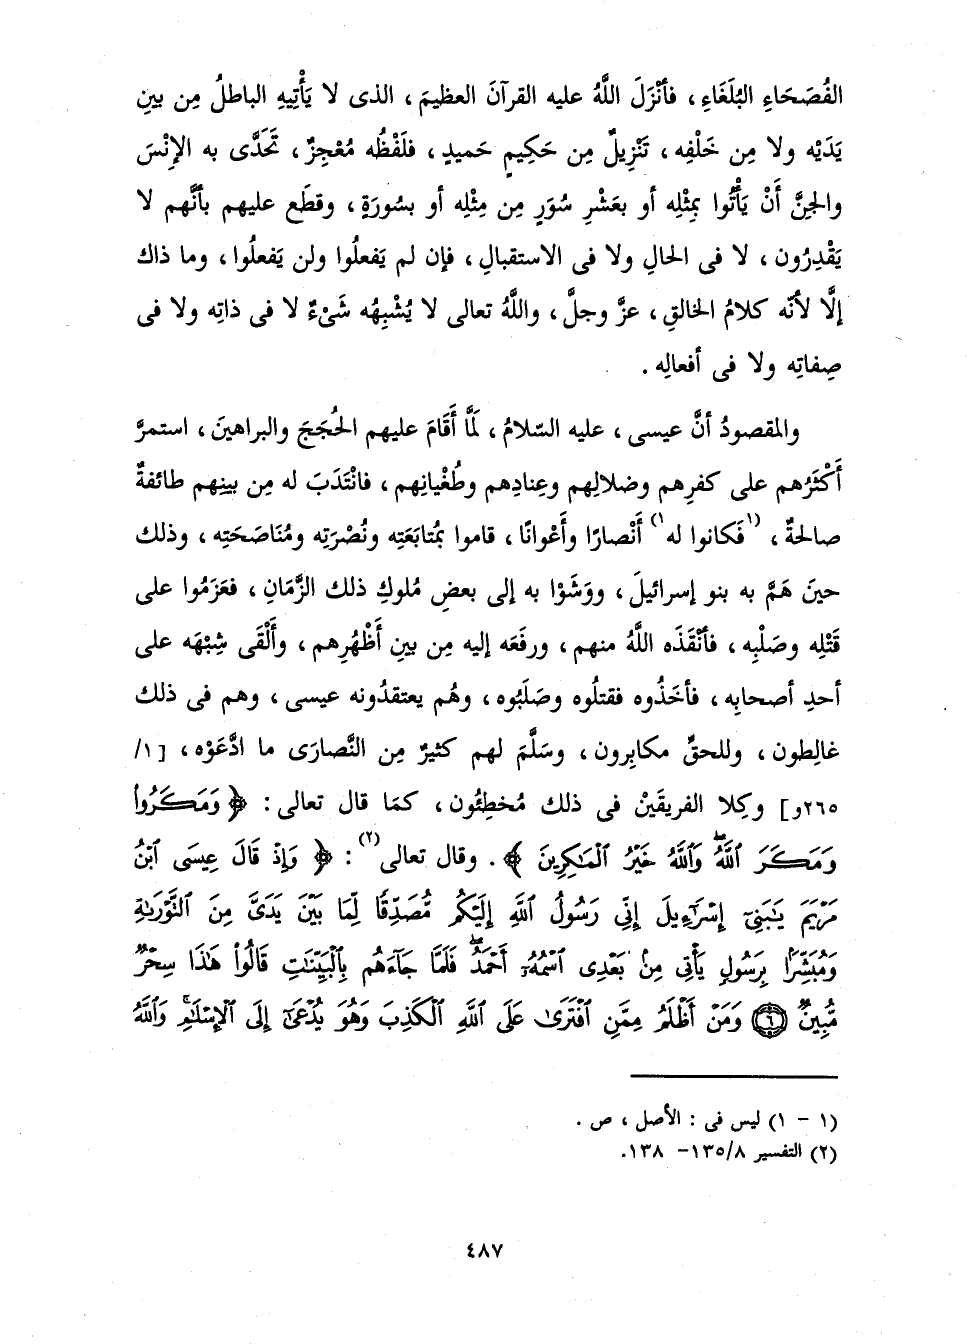 الفُصَحَاءِ البُلَغَاءِ، فأنْزَلَ اللَّهُ عليه القرآنَ العظيمَ، الذى لا يَأْتِيهِ الباطلُ مِن بينِ
يَدَيْه ولا مِن خَلْفِه، تَنْزِيلٌ مِن حَكِيمٍ حَميدٍ، فلَفْظُه مُعْجِزٌ، تَحَدَّى به الإِنْسَ
والجِنَّ أَنْ يَأْتُوا بمِثْلِه أو بعَشْرِ سُوَرٍ مِن مِثْلِه أو بسُورَةٍ، وقطَع عليهم بأنَّهم لا
يَقْدِرُون، لا فى الحالِ ولا فى الاستقبالِ، فإن لم يَفعلُوا ولن يَفعلُوا، وما ذاك
إلَّا لأنَّه كلامُ الخالقِ، عزَّ وجلَّ، واللَّهُ تعالى لا يُشْبِهُه شَىْءٌ لا فى ذاتِه ولا فى
صِفاتِه ولا فى أفعالِه .
والمقصودُ أنَّ عيسى، عليه السّلامُ، لَمَّا أَقَامَ عليهم الحُجَجَ والبراهينَ، استمرَّ
أَكْثَرُهم على كفرِهم وضلالِهم وعِنادِهم وطُغْيانِهم، فانْتَدَبَ له مِن بينِهم طائفةٌ
صالحةٌ، (١)فَكانوا له(١) أَنْصارًا وأَعْوانًا، قاموا بمُتابَعَتِه ونُصْرَتِه ومُنَاصَحَتِه، وذلك
حينَ هَمَّ به بنو إسرائيلَ، ووَشَوْا به إلى بعضِ مُلوكِ ذلك الزَّمَانِ، فعَزَمُوا على
قَتْلِه وصَلْبِه، فأنْقَذَه اللَّهُ منهم، ورفَعَه إليه مِن بينِ أَظْهُرِهم، وأَلْقَى شِبْهَه على
أحدِ أصحابِه، فأخَذُوه فقتلُوه وصَلَبُوه، وهُم يعتقدُونه عيسى، وهم فى ذلك
غالِطون، وللحقِّ مكابِرون، وسَلَّمَ لهم كثيرٌ مِن النَّصارَى ما ادَّعَوْه، [١/
٢٦٥و] وكِلا الفريقَيْن فى ذلك مُخطِئُون، كمَا قال تعالى: ﴿ وَمَكَرُوا۟
وَمَكَرَ ٱللَّهُ ۖ وَٱللَّهُ خَيْرُ ٱلْمَـٰكِرِينَ ﴾. وقال تعالى(٢): ﴿ وَإِذْ قَالَ عِيسَى ٱبْنُ
مَرْيَمَ يَـٰبَنِىٓ إِسْرَٰٓءِيلَ إِنِّى رَسُولُ ٱللَّهِ إِلَيْكُم مُّصَدِّقًا لِّمَا بَيْنَ يَدَىَّ مِنَ ٱلتَّوْرَىٰةِ
وَمُبَشِّرًۢا بِرَسُولٍ يَأْتِى مِنۢ بَعْدِى ٱسْمُهُۥٓ أَحْمَدُ ۖ فَلَمَّا جَآءَهُم بِٱلْبَيِّنَـٰتِ قَالُوا۟ هَـٰذَا سِحْرٌ
مُّبِينٌ ﴿٦﴾ وَمَنْ أَظْلَمُ مِمَّنِ ٱفْتَرَىٰ عَلَى ٱللَّهِ ٱلْكَذِبَ وَهُوَ يُدْعَىٰٓ إِلَى ٱلْإِسْلَـٰمِ ۚ وَٱللَّهُ
(١ - ١) ليس فى : الأصل ، ص .
(٢) التفسير ٨/١٣٥- ١٣٨.
٤٨٧